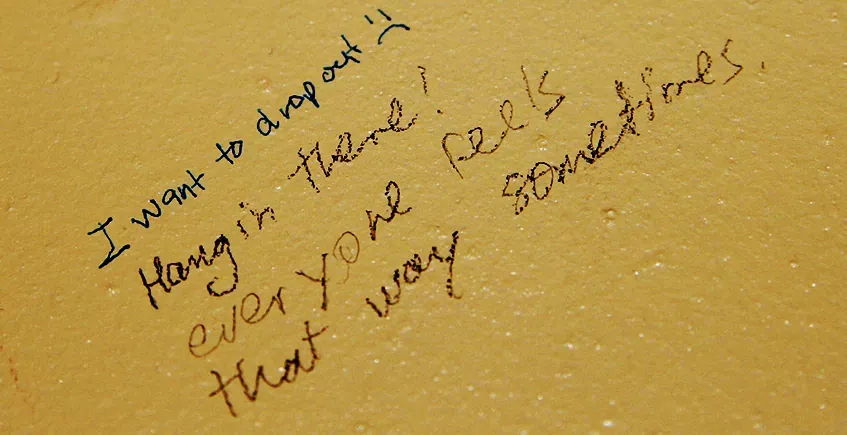 I want to drop out!! :(
Hang in there!
everyone feels
that way sometimes.